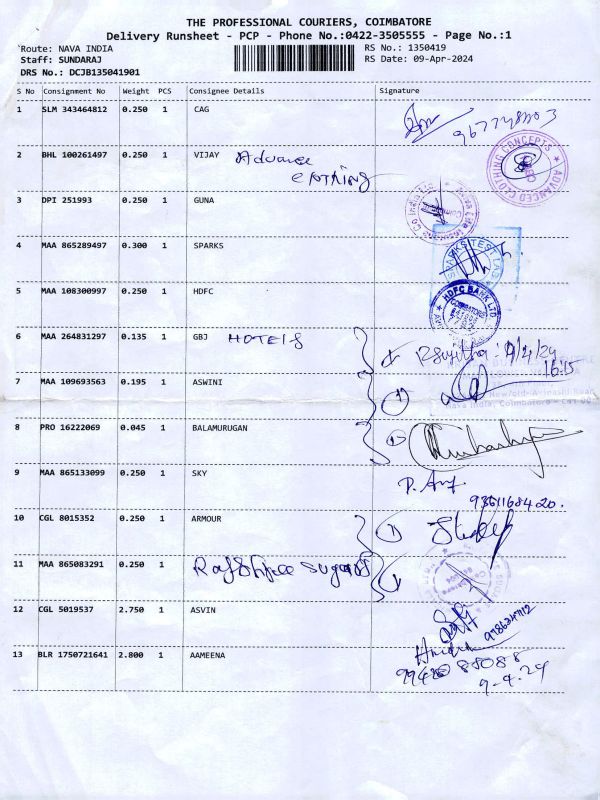 THE PROFESSIONAL COURIERS, COIMBATORE
Delivery Runsheet - PCP - Phone No.:0422-3505555 - Page No.:1
Route: NAVA INDIA
RS No.: 1350419
Staff: SUNDARAJ
RS Date: 09-Apr-2024
DRS No.: DCJB135041901
S No Consignment No Weight PCS Consignee Details Signature
1 SLM 343464812 0.250 1 CAG
2 BHL 100261497 0.250 1 VIJAY Advance
ADVANCED CLOTHING CONCEPTS
3 DPI 251993 0.250 1 GUNA
4 MAA 865289497 0.300 1 SPARKS
SPARKS TEST LAB
5 MAA 108300997 0.250 1 HDFC
HDFC BANK LTD
COIMBATORE
6 MAA 264831297 0.135 1 GBJ HOTELS
9/4/24
16:15
7 MAA 109693563 0.195 1 ASWINI
8 PRO 16222069 0.045 1 BALAMURUGAN
9 MAA 865133099 0.250 1 SKY
10 CGL 8015352 0.250 1 ARMOUR
11 MAA 865083291 0.250 1 Rajshree sugars
12 CGL 5019537 2.750 1 ASVIN
13 BLR 1750721641 2.800 1 AAMEENA
9-4.24